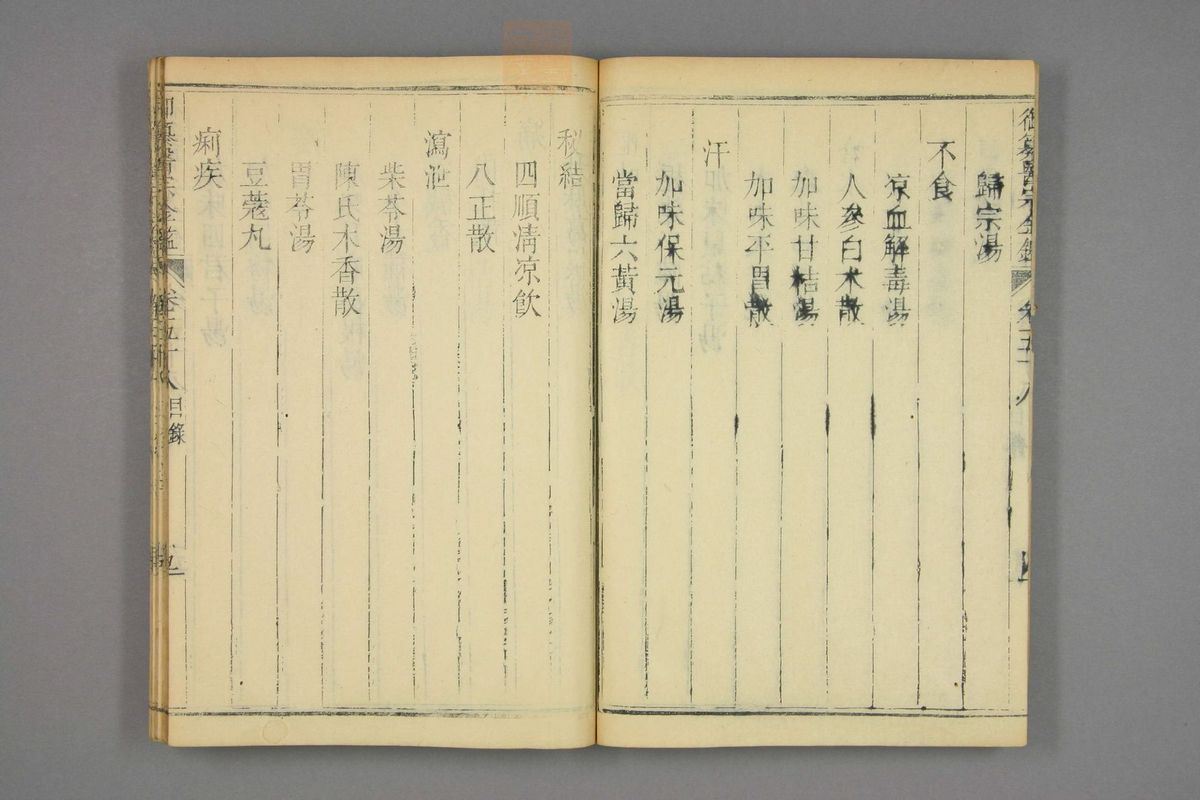 御纂醫宗金鑑
卷五十八
歸宗湯
不食
凉血解毒湯
人參白朮散
加味甘桔湯
加味平胃散
汗
加味保元湯
當歸六黃湯
秘結
四順淸凉飮
八正散
瀉泄
柴苓湯
陳氏木香散
胃苓湯
豆蔻丸
痢疾
卷五十八 目錄
五